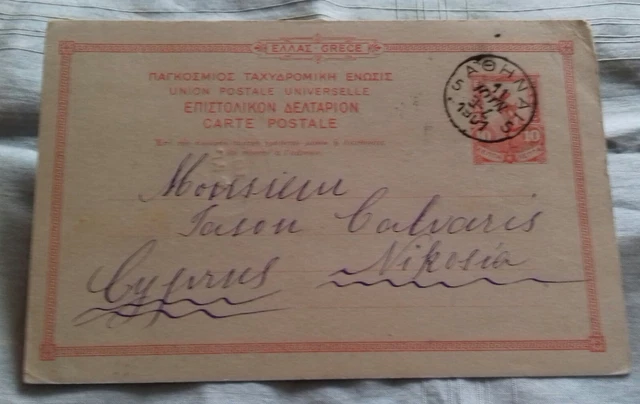 ΕΛΛΑΣ-GRÈCE
ΠΑΓΚΟΣΜΙΟΣ ΤΑΧΥΔΡΟΜΙΚΗ ΕΝΩΣΙΣ
UNION POSTALE UNIVERSELLE
ΕΠΙΣΤΟΛΙΚΟΝ ΔΕΛΤΑΡΙΟΝ
CARTE POSTALE
ΑΘΗΝΑΙ 5
11
ΙΟΥΝ
1901
10
Monsieur
Jason Calvaris
Cyprus Nikosia